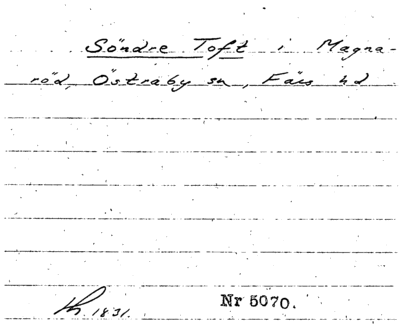 Söndre Toft i Magna-
röd, Östraby sn, Färs hd
1831.
Nr 5070.